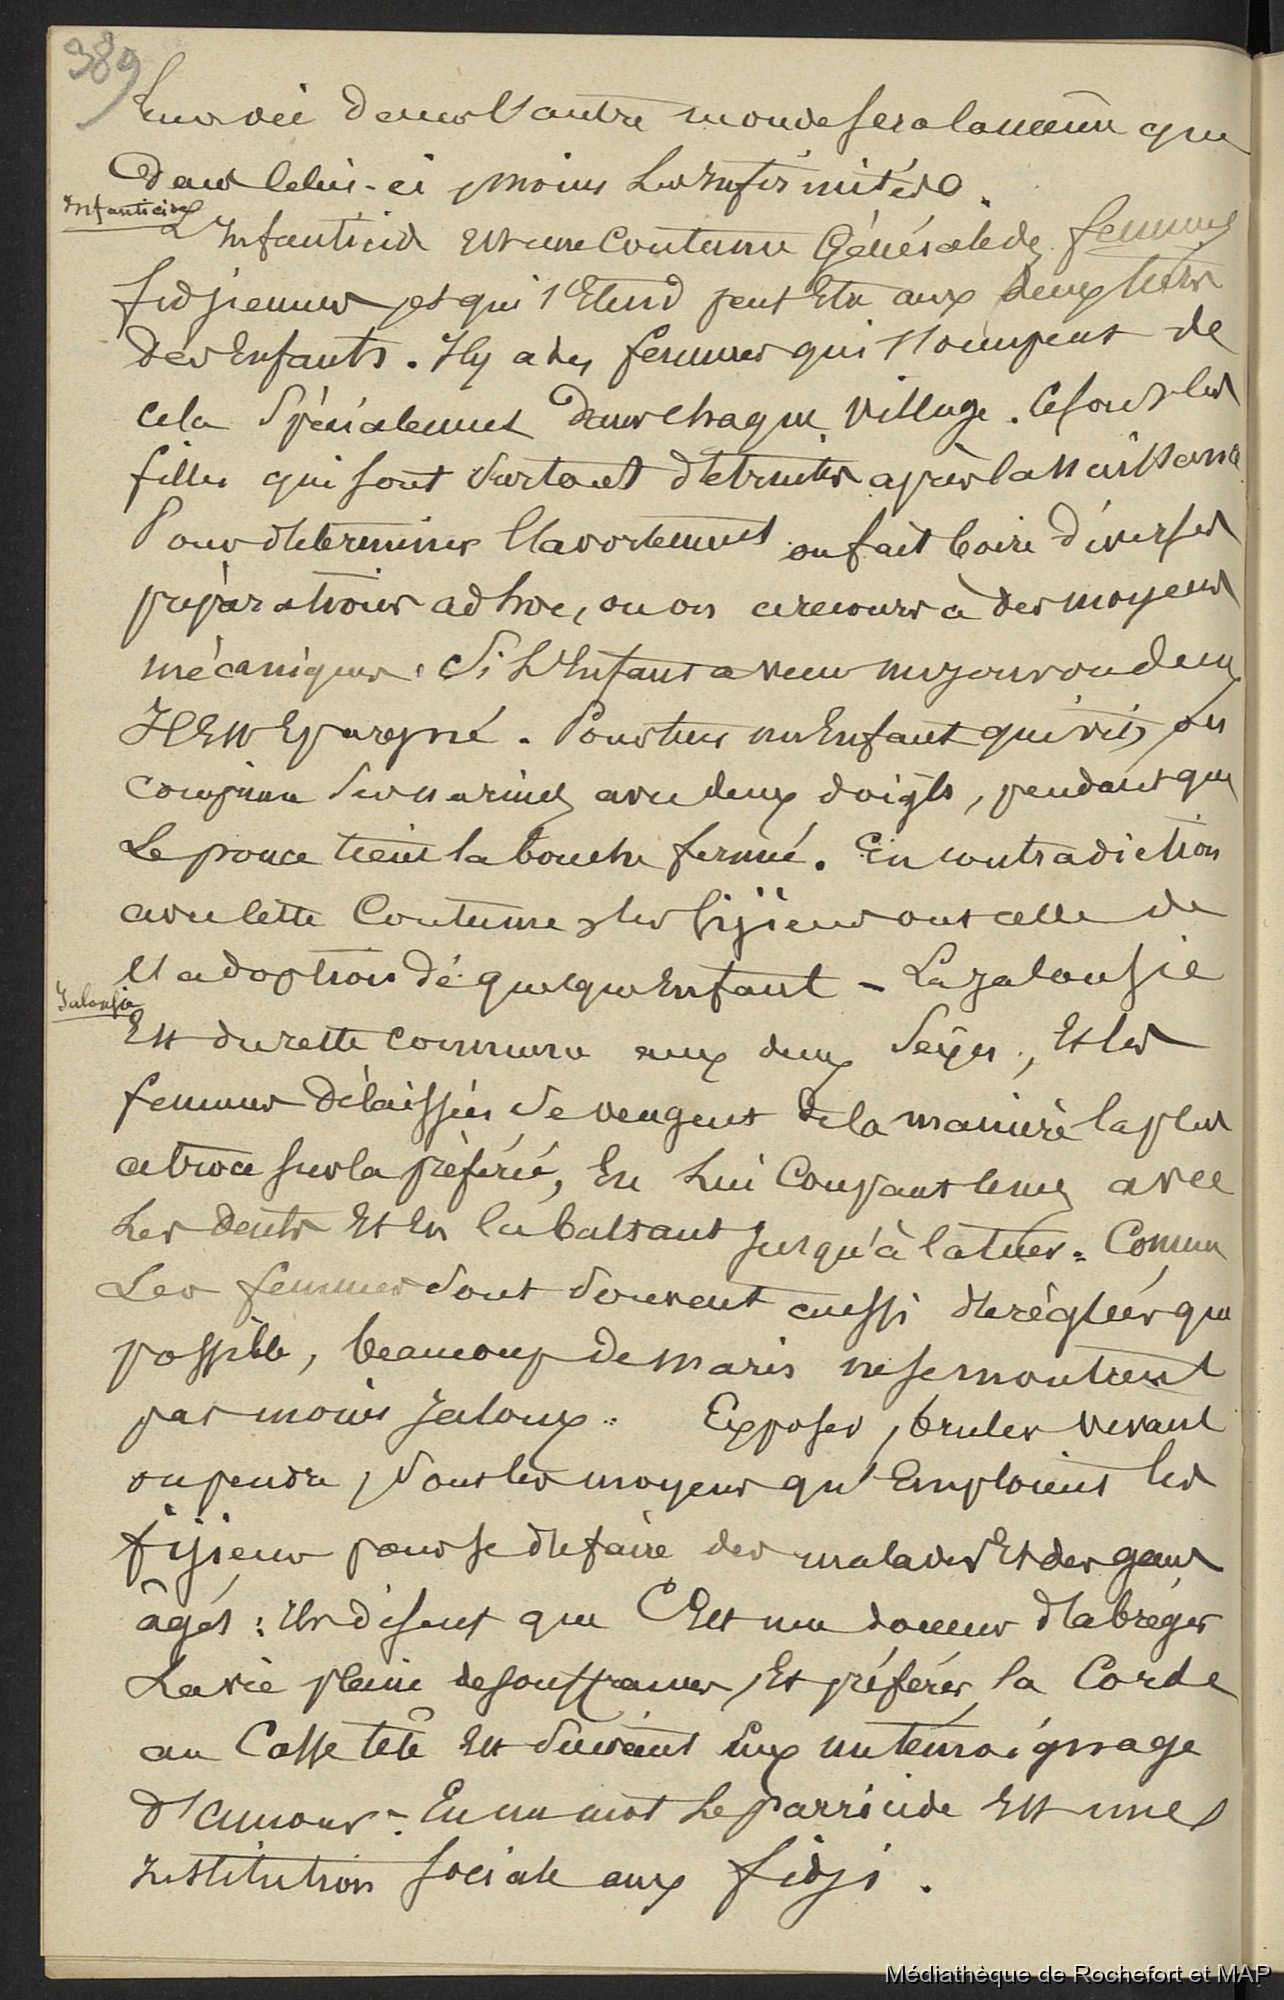 389
Leur vie dans l'autre monde sera la même que
dans celui-ci, moins les infirmités.
Infanticide
L'Infanticide Est une Coutume Générale des femmes
fidjiennes, et qui s'Etend peut Etre aux deux tiers
des Enfants. Il y a des femmes qui s'occupent de
cela Spécialement dans chaque village. Ce sont les
filles qui sont Surtout détruites après la Naissance
Pour déterminer l'avortement on fait boire diverses
préparations ad hoc, ou on a recours à des moyens
mécaniques. Si L'Enfant a vecu un jour ou deux
Il Est Epargné. Pour tuer un Enfant qui vit, on
comprime Ses narines avec deux doigts, pendant que
Le pouce tient la bouche fermée. En contradiction
avec cette Coutume, les fijiens ont celle de
l'adoption de quelque Enfant - La jalousie
Jalousie
Est du reste commune aux deux Sexes, Et les
femmes délaissées se vengent de la manière la plus
atroce sur la préférée, En Lui Coupant le nez avec
Les dents Et En la battant jusqu'à la tuer. Comme
Les femmes sont souvent aussi déréglées que
possible, beaucoup de maris ne se montrent
pas moins jaloux. Exposer, bruler vivant
ou pendre, Sont les moyens qu'Emploient les
fijiens pour se défaire des malades Et des gens
âgés : Ils disent que C'Est une douceur d'abréger
La vie pleine de souffrances, Et préférer la Corde
au Casse tête Est Suivant Eux un témoignage
d'amour. - En un mot Le parricide Est une
Institution Sociale aux fidji.
Médiathèque de Rochefort et MAP